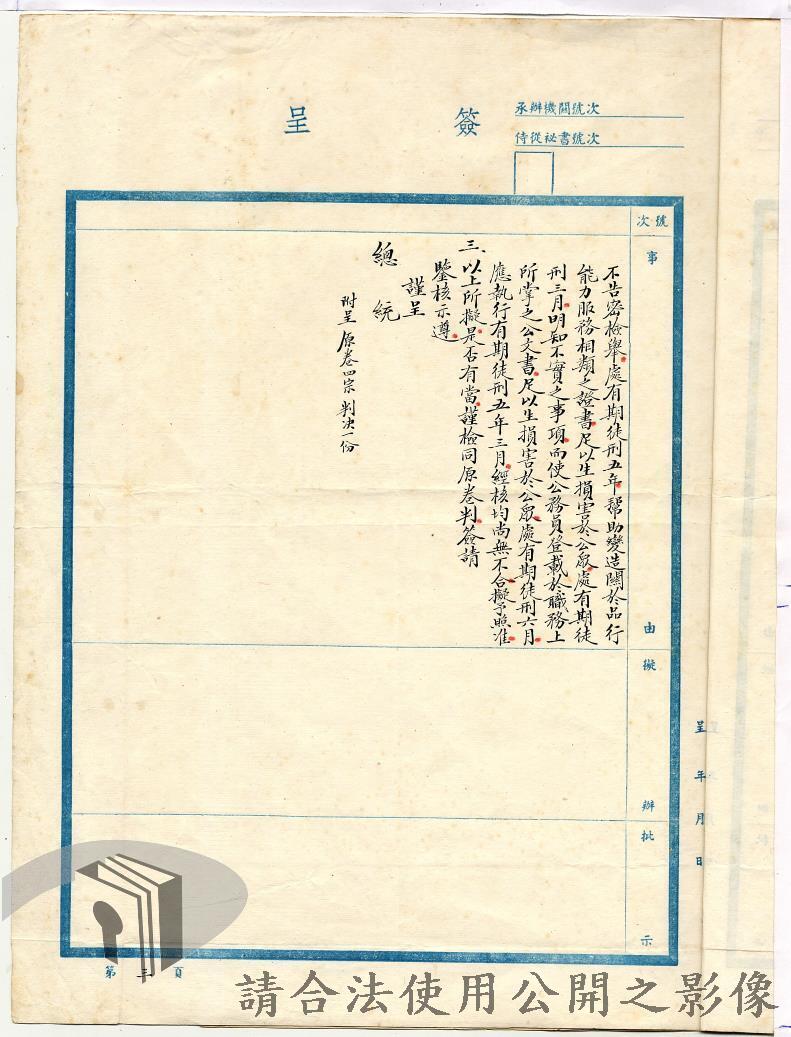 簽呈
承辦機關號次
侍從祕書號次
號次
事由
擬辦
批示
不告密檢舉處有期徒刑五年幫助變造關於品行
能力服務相類之證書足以生損害於公眾處有期徒
刑三月明知不實之事項而使公務員登載於職務上
所掌之公文書足以生損害於公眾處有期徒刑六月
應執行有期徒刑五年三月經核均尚無不合擬予照准
三、以上所擬是否有當謹檢同原卷判簽請
鑒核示遵
謹呈
總統
附呈原卷四宗判決一份
呈 年 月 日
第三頁
請合法使用公開之影像